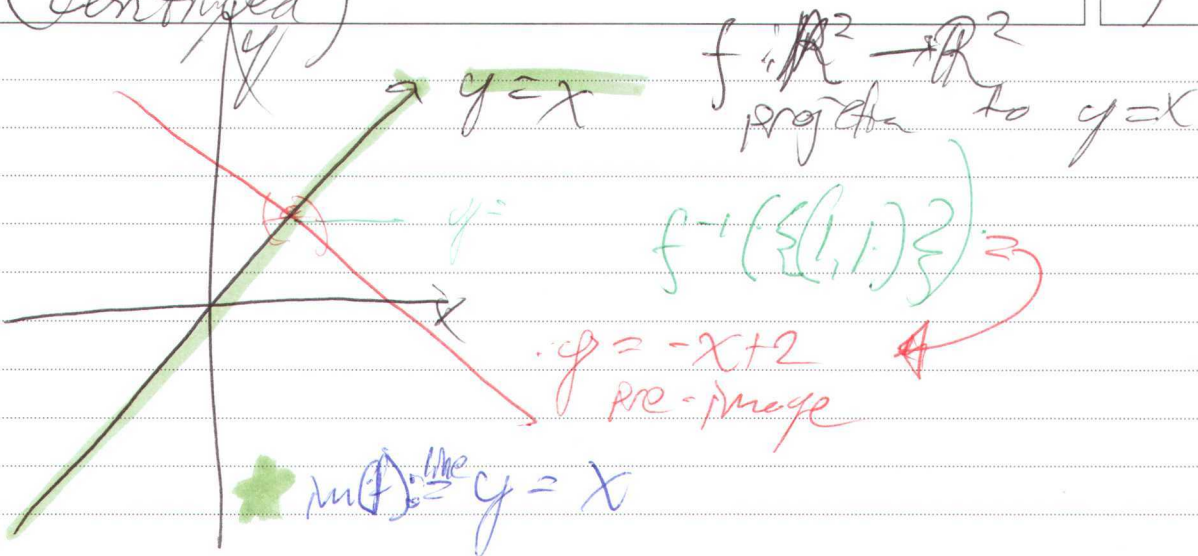 (continued)
y
y = x
f : ℝ² → ℝ²
projection to y = x
y =
f⁻¹({(1,1)}) =
x
y = -x+2
pre-image
im(f) := line y = x